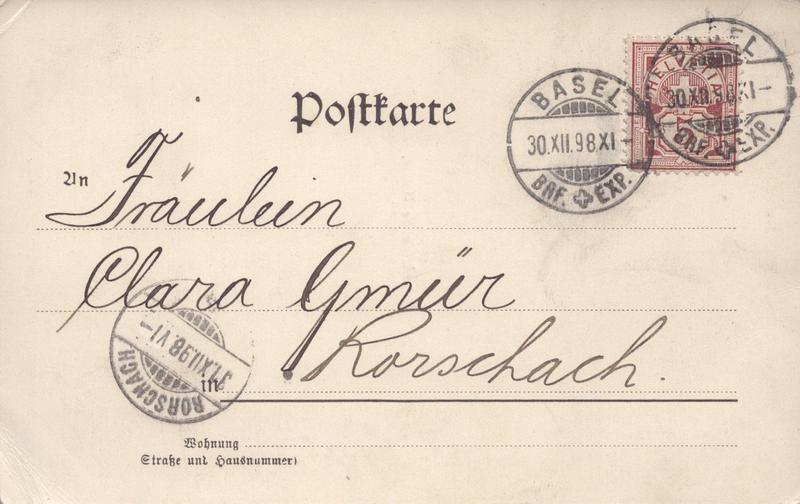 Postkarte
BASEL
30.XII.98.XI-
BRF. EXP.
HELVETIA
BASEL
30.XII.98.XI-
BRF. EXP.
An
Fräulein
Clara Gmür
in Rorschach.
31.XII.98.VI-
RORSCHACH
Wohnung
(Straße und Hausnummer)